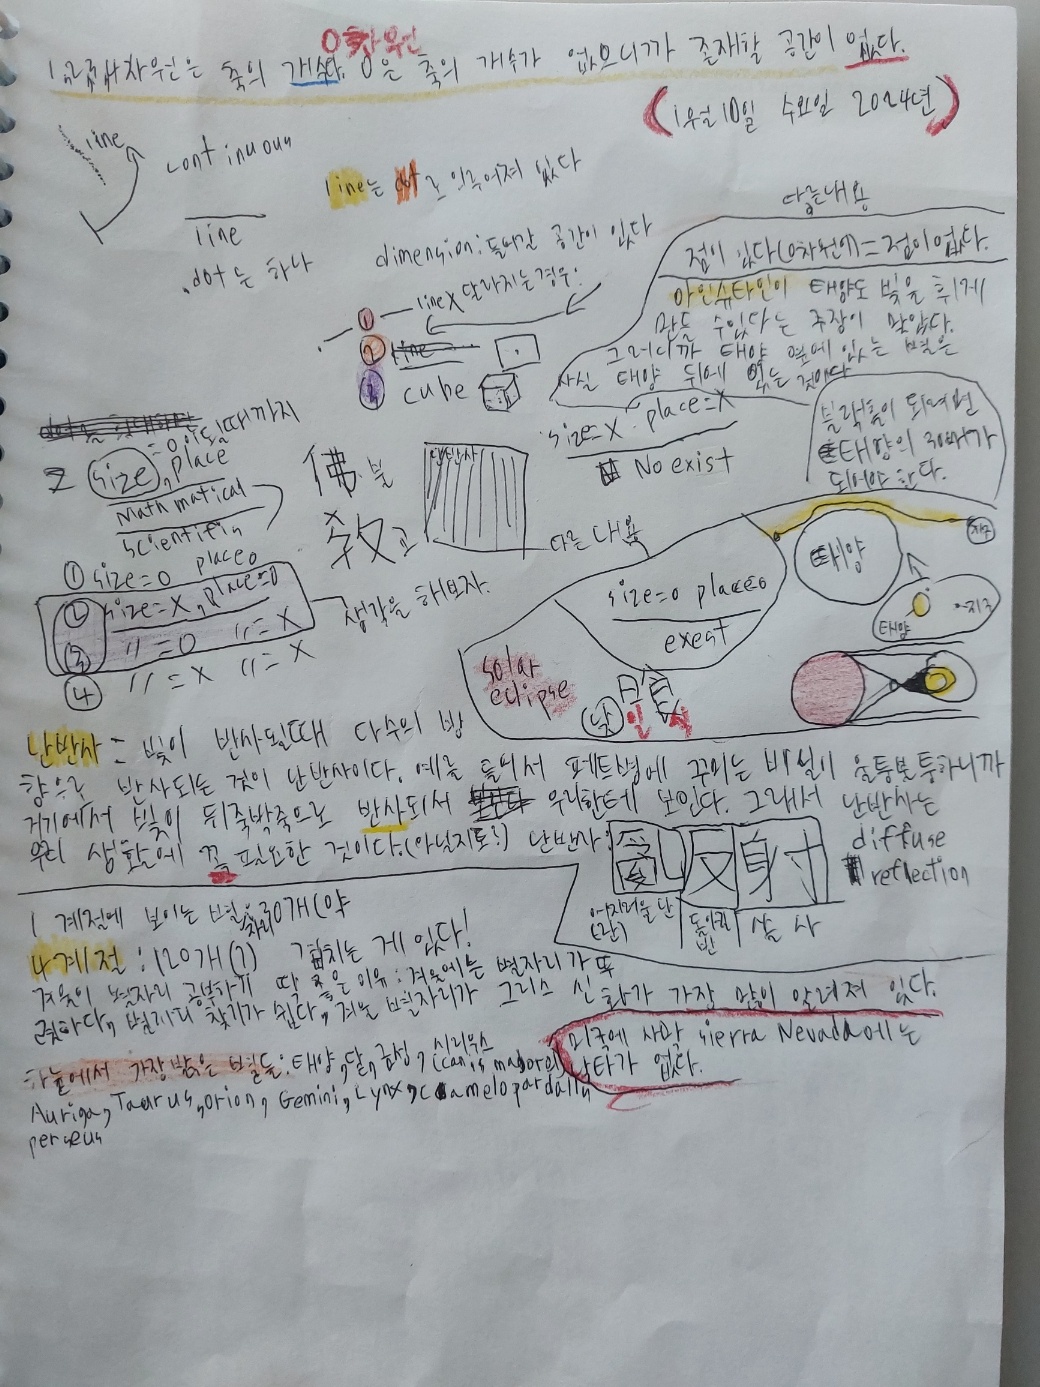 0차원
1,2,3,4차원은 축의 개수다. 0은 축의 개수가 없으니까 존재할 공간이 없다.
(1월10일 수요일 2024년)
line
continuous
line
.dot는 하나
line는 dot로 이루어져 있다
dimension: 들어간 공간이 있다
line X 달라지는경우:
①
② line
③ cube
다른내용
점이 있다(0차원) = 점이 없다.
아인슈타인이 태양도 빛을 휘게
만들 수있다는 주장이 맞았다.
그러니까 태양 옆에 있는 별은
사실 태양 뒤에 있는 것이다
블랙홀이 되려면
태양의 30배가
되어야 한다.
=0이될때까지
2 size, place
Math matical
scientifin
① size=0 place0
② size=X, place=0
③ 〃=0 〃=X
④ 〃=X 〃=X
생각을 해보자.
佛 불
敎 교
난반사
size=X place=X
No exist
다른 내용
size=0 place0
exest
태양
지구
태양
지구
solar
eclipse
日食
낮 일 식
난반사 = 빛이 반사될때 다수의 방
향으로 반사되는 것이 난반사이다. 예를 들어서 페트병에 꾸미는 비닐이 울퉁불퉁하니까
거기에서 빛이 뒤죽박죽으로 반사되서 우리한테 보인다. 그래서 난반사는
우리 생활에 꼭 필요한 것이다.(아닐지도?) 난반사:
亂反射
diffuse
reflection
어지러울 난
(란)
돌이킬
반
쏠 사
1 계절에 보이는 별자리 30개(약
4계절 : 120개(?) 겹치는 게 있다!
겨울이 별자리 공부하기 딱 좋은 이유: 겨울에는 별자리가 뚜
렷하다, 별자리 찾기가 쉽다, 겨울 별자리가 그리스 신화가 가장 많이 알려져 있다.
하늘에서 가장 밝은 별들: 태양, 달, 금성, 시리우스 (canis magore)
미국에 사막 sierra Nevada에는
낙타가 없다.
Auriga, Taurus, orion, Gemini, Lynx, camelopardalis
perseus